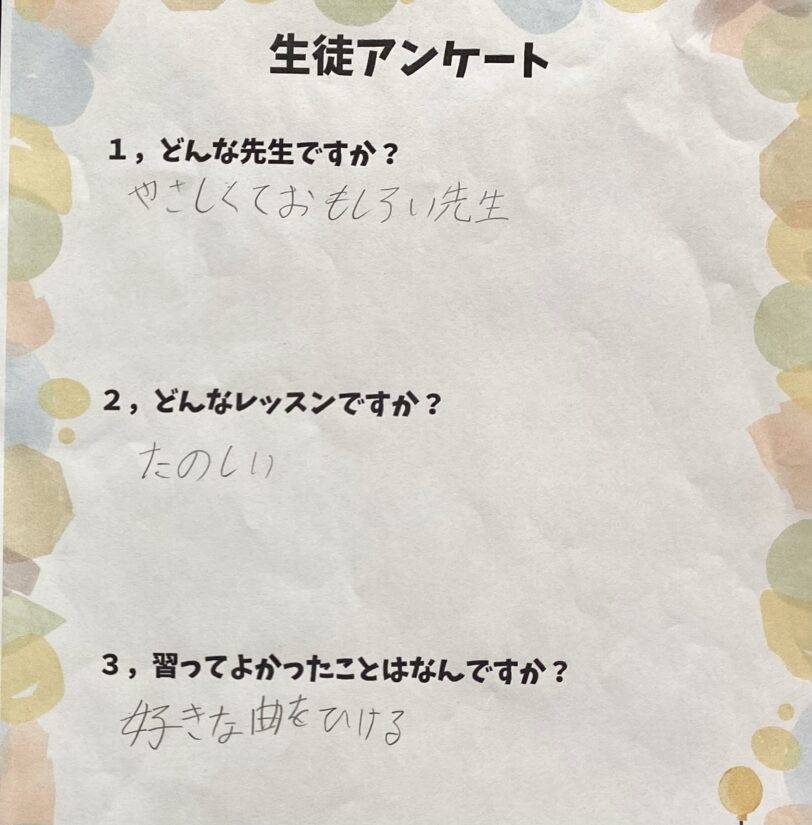 生徒アンケート
１，どんな先生ですか？
やさしくておもしろい先生
２，どんなレッスンですか？
たのしい
３，習ってよかったことはなんですか？
好きな曲をひける